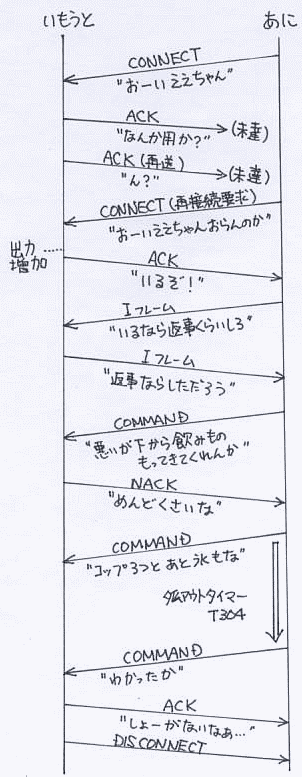 いもうと
あに
CONNECT
"おーいええちゃん"
ACK
"なんか用か?"
(未達)
ACK(再送)
"ん?"
(未達)
CONNECT(再接続要求)
"おーいええちゃんおらんのか"
出力
増加
ACK
"いるぞ!"
Iフレーム
"いるなら返事くらいしろ"
Iフレーム
"返事ならしただろう"
COMMAND
"悪いが下から飲みもの
もってきてくれんか"
NACK
"めんどくさいな"
COMMAND
"コップ3つとあと氷もな"
タイムアウトタイマー
T304
COMMAND
"わかったか"
ACK
"しょーがないなぁ…"
DISCONNECT